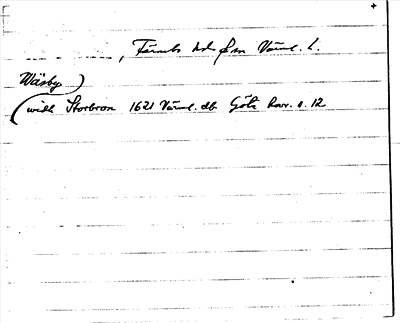 , Färnebo hd från Värml. l.
Wäsby)
(widh Storbron 1621 Värml. db. Göta hovr. s. 12